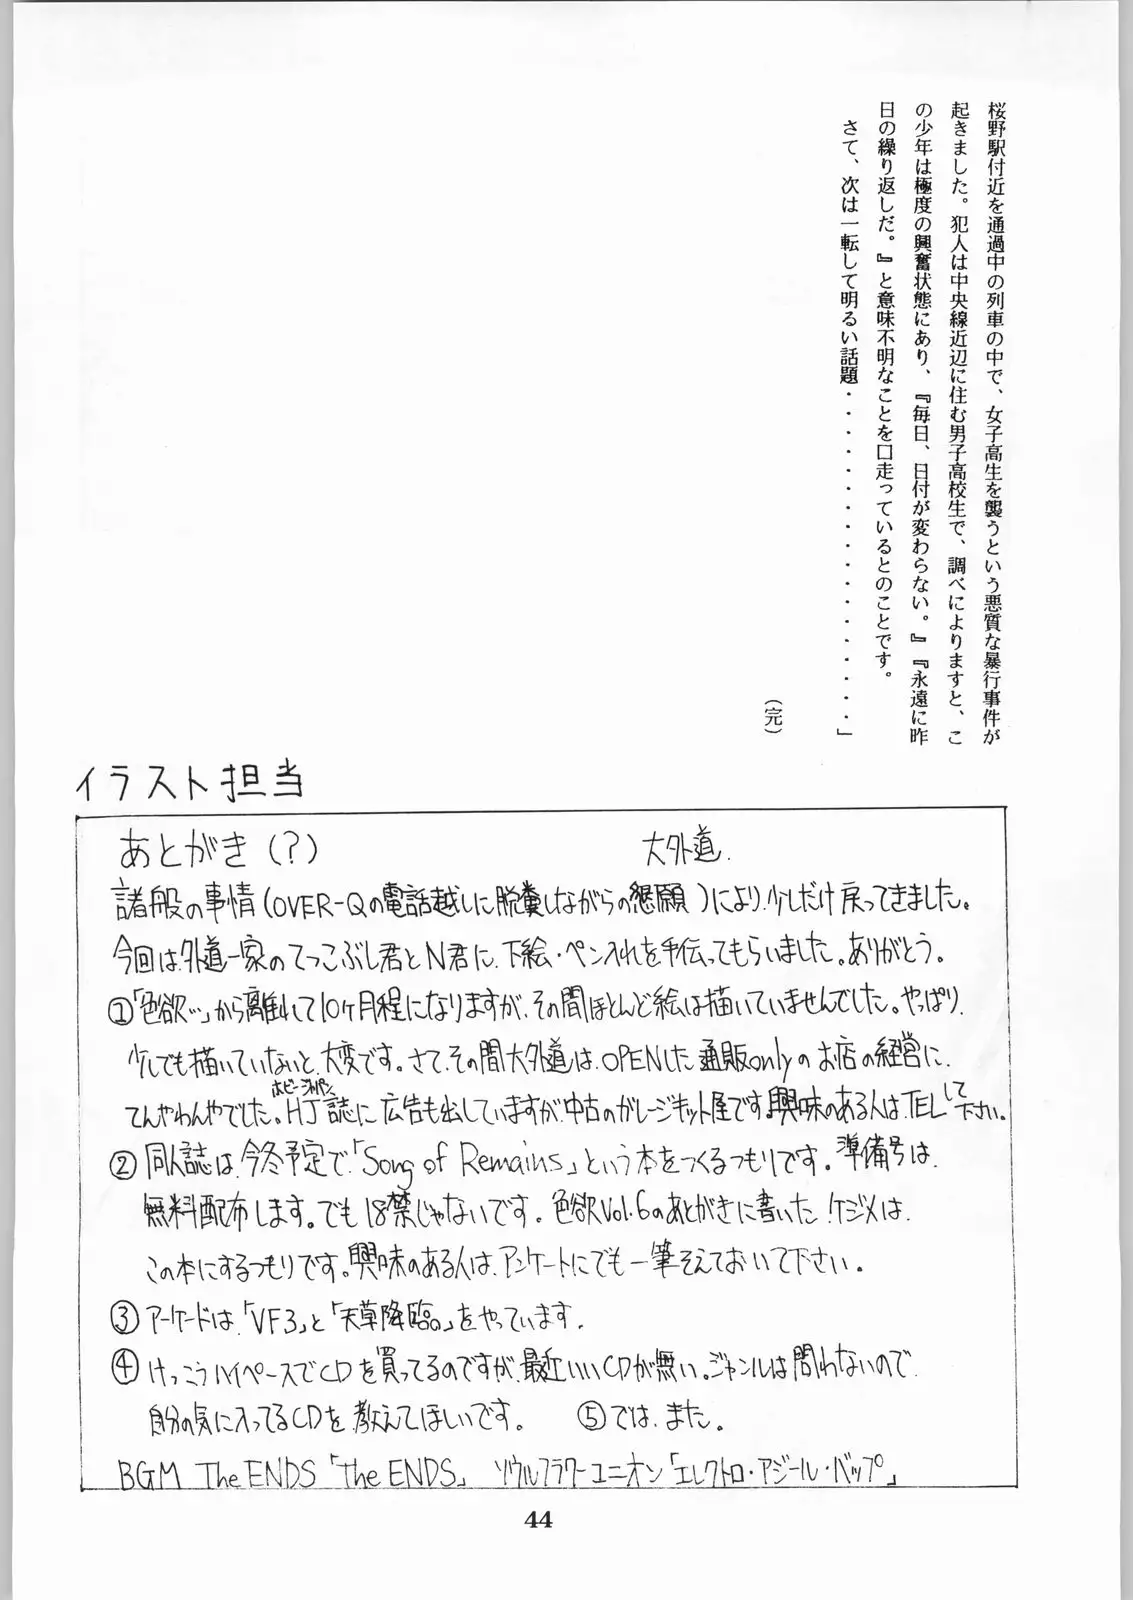 桜野駅付近を通過中の列車の中で、女子高生を襲うという悪質な暴行事件が
起きました。犯人は中央線近辺に住む男子高校生で、調べによりますと、こ
の少年は極度の興奮状態にあり、『毎日、日付が変わらない。』『永遠に昨
日の繰り返しだ。』と意味不明なことを口走っているとのことです。
さて、次は一転して明るい話題・・・・・・・・・・・・・・・・・・」
（完）
イラスト担当
あとがき(?) 大外道.
諸般の事情(OVER-Qの電話越しに脱糞しながらの懇願)により、少しだけ戻ってきました。
今回は、外道一家のてっこぶし君とN君に、下絵・ペン入れを手伝ってもらいました。ありがとう。
①「色欲…」から離れて10ヶ月程になりますが、その間ほとんど絵は描いていませんでした。やっぱり、
少しでも描いていないと、大変です。さて、その間大外道は、OPENした通販onlyのお店の経営に、
てんやわんやでした。HJ誌に広告も出していますが、中古のガレージキット屋です。興味のある人は、TELして下さい。
ホビージャパン
②同人誌は、今冬予定で、「Song of Remains」という本をつくるつもりです。準備号は、
無料配布します。でも18禁じゃないです。色欲Vol.6のあとがきに書いた、ケジメは、
この本にするつもりです。興味のある人は、アンケートにでも一筆そえておいて下さい。
③アーケードは、「VF3」と「天草降臨。」をやっています。
④けっこうハイペースでCDを買ってるのですが、最近いいCDが無い。ジャンルは問わないので、
自分の気に入ってるCDを、教えてほしいです。 ⑤では、また。
BGM The ENDS「the ENDS」 ソウルフラワーユニオン「エレクトロ・アジール・バップ」
44